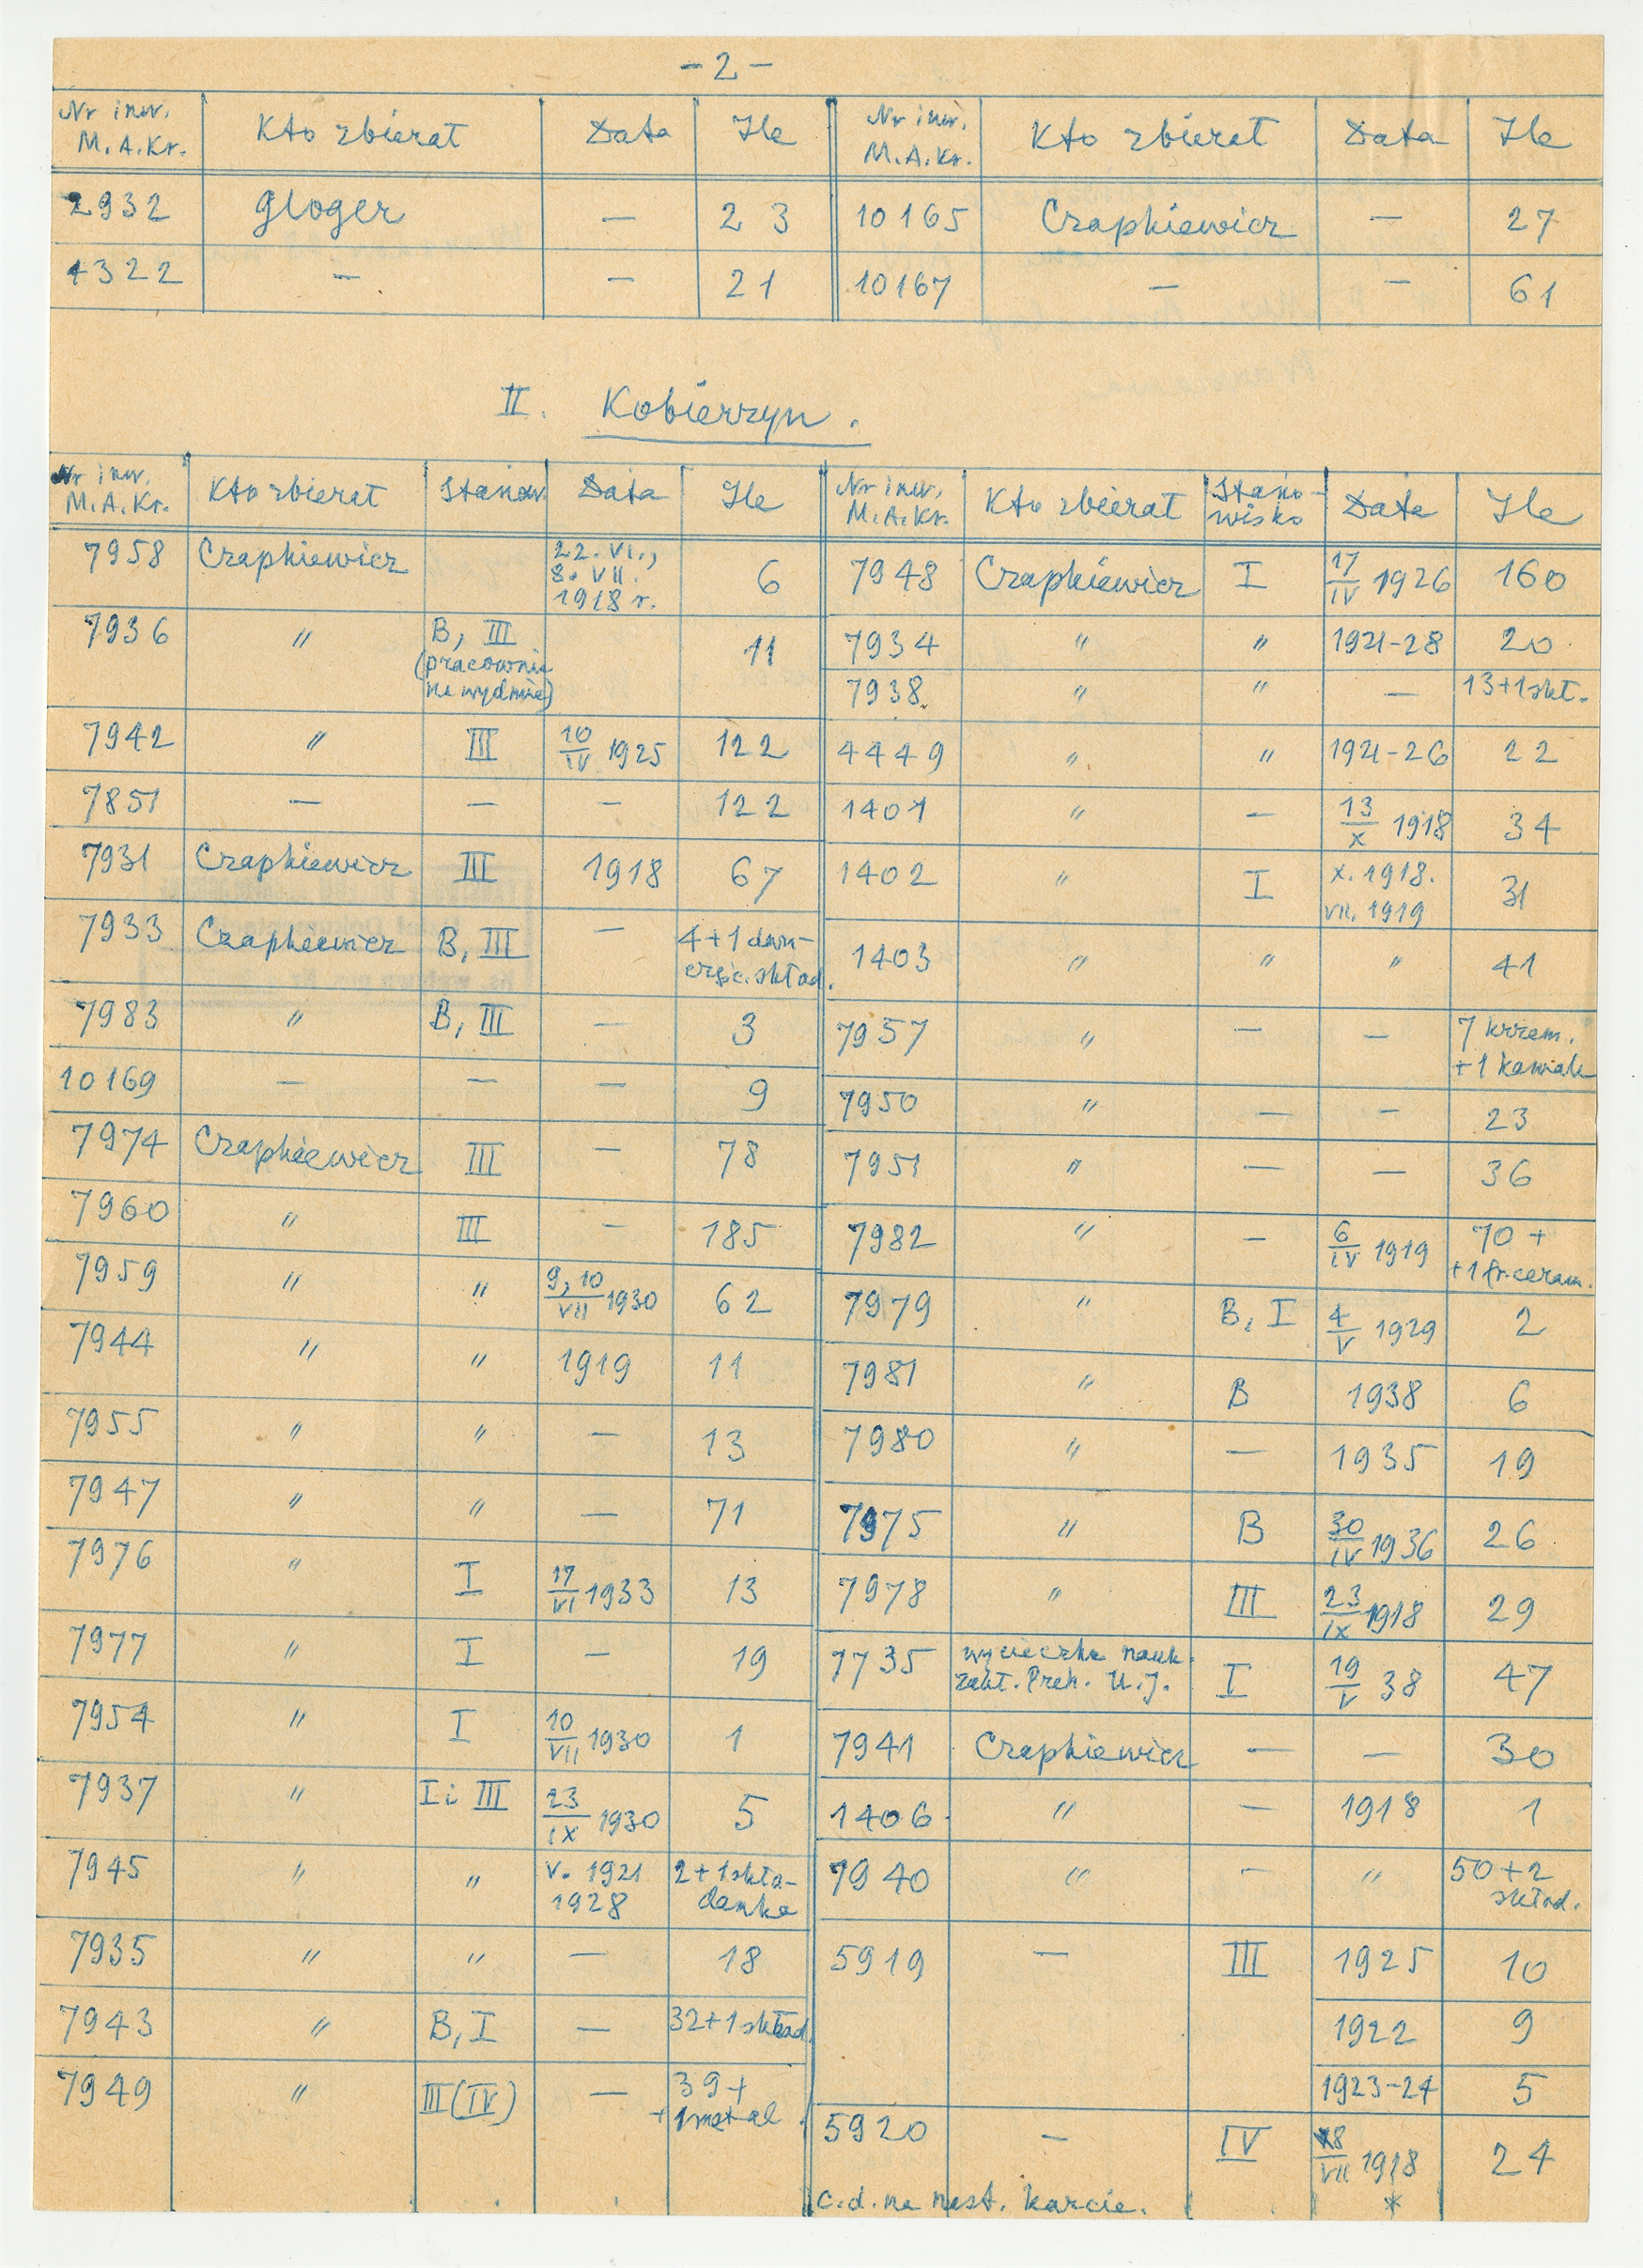 - 2 -
Nr inw. M.A.Kr. Kto zbierał Data Ile Nr inw. M.A.Kr. Kto zbierał Data Ile
2932 Gloger — 23 10165 Czapkiewicz — 27
4322 — — 21 10167 — — 61
II. Kobierzyn.
Nr inw. M.A.Kr. Kto zbierał Stanow. Data Ile
7958 Czapkiewicz 22. VI., 8. VII. 1918 r. 6
7936 " B, III (pracownia na wydmie) 11
7942 " III 10/IV 1925 122
7851 — — — 122
7931 Czapkiewicz III 1918 67
7933 Czapkiewicz B, III — 4+1 skład.
7983 " B, III — 3
10169 — — — 9
7974 Czapkiewicz III — 78
7960 " III — 185
7959 " " 9, 10/VII 1930 62
7944 " " 1919 11
7955 " " — 13
7947 " " — 71
7976 " I 17/VI 1933 13
7977 " I — 19
7954 " I 10/VII 1930 1
7937 " I i III 23/IX 1930 5
7945 " " V. 1921 1928 2+1 składanka
7935 " " — 18
7943 " B, I — 32+1 skład.
7949 " III (IV) — 39+ +1 metal
Nr inw. M.A.Kr. Kto zbierał Stano-wisko Data Ile
7948 Czapkiewicz I 17/IV 1926 160
7934 " " 1921-28 20
7938. " " — 13+1 skł.
4449 " " 1921-26 22
1401 " — 13/X 1918 34
1402 " I X. 1918. VII. 1919 31
1403 " " " 41
7957 " — — 7 krzem. +1 kawałe
7950 " — — 23
7951 " — — 36
7982 " — 6/IV 1919 70 + +1 fr. ceram.
7979 " B, I 4/V 1929 2
7981 " B 1938 6
7980 " — 1935 19
7975 " B 30/IV 1936 26
7978 " III 23/IX 1918 29
7735 wycieczka nauk. Zakł. Preh. U.J. I 19/V 38 47
7941 Czapkiewicz — — 30
1406 " — 1918 1
7940 " — " 50+2 skład.
5919 — III 1925 10
1922 9
1923-24 5
5920 — IV 18/VII 1918 24
c.d. na nast. karcie. *